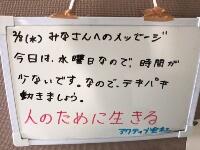 3/8(水) みなさんへのメッセージ
今日は、水曜日なので、時間が
少ないです。なので、テキパキ
動きましょう。
人のために生きる
アクティブ